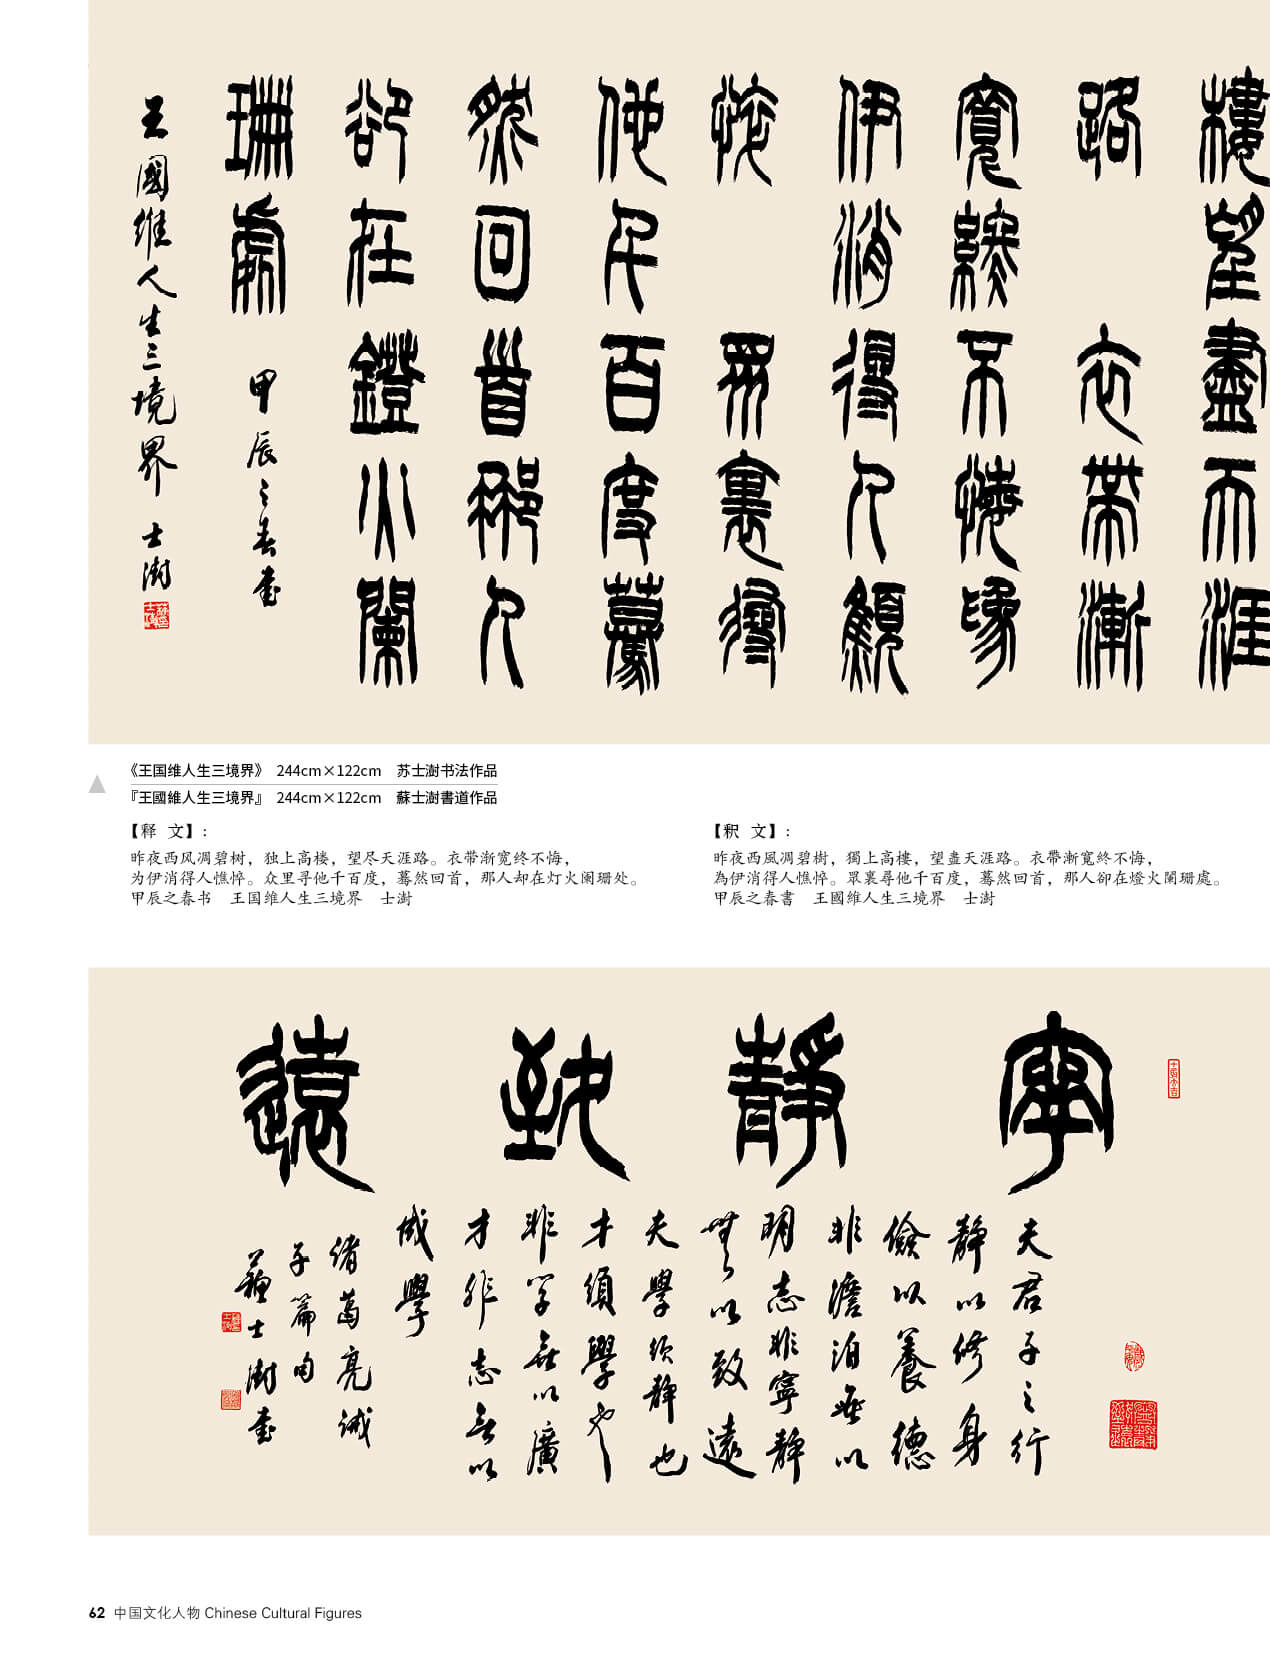 樓望盡天涯
路 衣帶漸
寬終不悔為
伊消得人顦
悴 眾裏尋
他千百度驀
然回首那人
卻在鐙火闌
珊處 甲辰之春書
王國維人生三境界 士澍
《王国维人生三境界》 244cm×122cm 苏士澍书法作品
『王國維人生三境界』 244cm×122cm 蘇士澍書道作品
【释 文】:
昨夜西风凋碧树，独上高楼，望尽天涯路。衣带渐宽终不悔，
为伊消得人憔悴。众里寻他千百度，蓦然回首，那人却在灯火阑珊处。
甲辰之春书 王国维人生三境界 士澍
【釈 文】:
昨夜西風凋碧樹，獨上高樓，望盡天涯路。衣帶漸寬終不悔，
為伊消得人憔悴。眾裏尋他千百度，驀然回首，那人卻在燈火闌珊處。
甲辰之春書 王國維人生三境界 士澍
寧靜致遠
夫君子之行
靜以修身
儉以養德
非澹泊無以
明志非寧靜
無以致遠
夫學須靜也
才須學也
非學無以廣
才非志無以
成學
諸葛亮誡
子篇句
蘇士澍書
62 中国文化人物 Chinese Cultural Figures